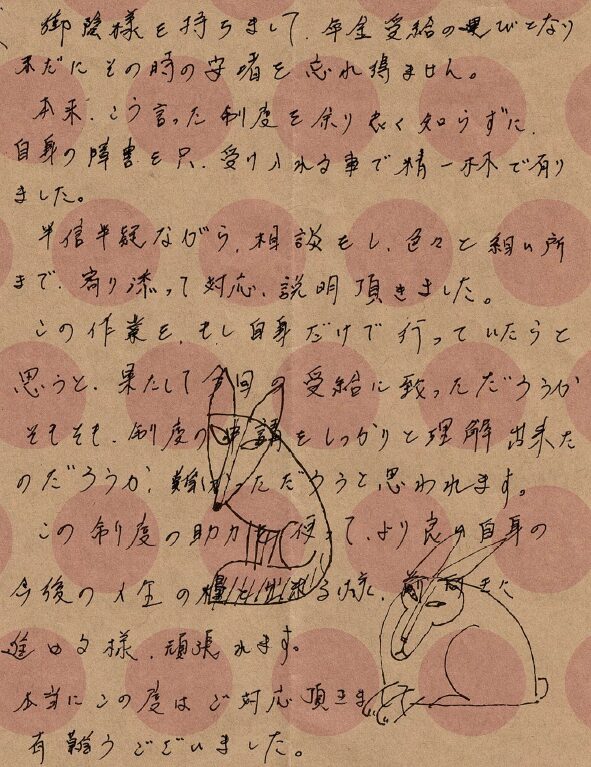 御陰様を持ちまして、年金受給の運びとなり
未だにその時の安堵を忘れ得ません。
本来、こう言った制度を余り良く知らずに、
自身の障害を只、受け入れる事で精一杯で有り
ました。
半信半疑ながら、相談をし、色々と細い所
まで、寄り添って対応、説明頂きました。
この作業を、もし自身だけで行っていたらと
思うと、果たして今回の受給に致っただろうか
そもそも、制度の申請をしっかりと理解出来た
のだろうか、難しかっただろうと思われます。
この制度の助力を使って、より良い自身の
今後の人生の糧と出来る様、前向きに
進める様、頑張れます。
本当にこの度はご対応頂きま
有難うございました。